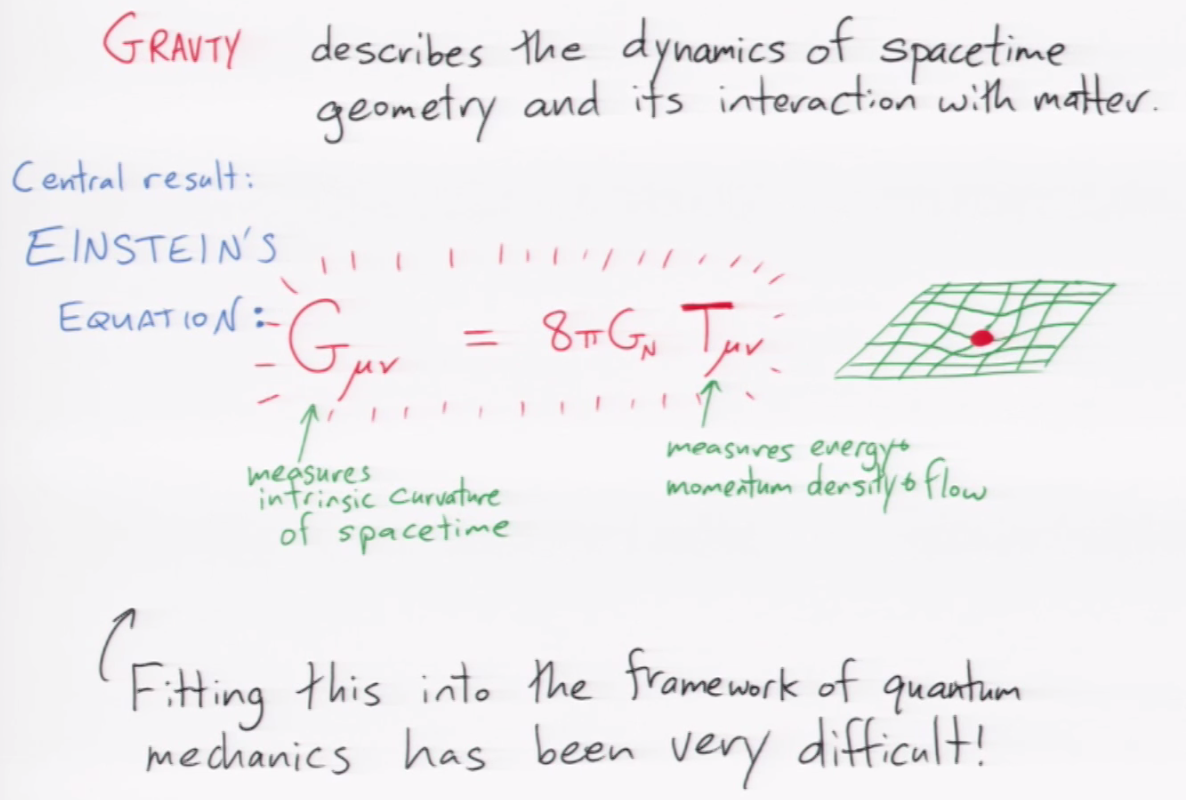 GRAVTY describes the dynamics of spacetime
geometry and its interaction with matter.
Central result:
EINSTEIN'S
EQUATION:
Gμν = 8πG_N Tμν
measures
intrinsic curvature
of spacetime
measures energy+
momentum density+flow
Fitting this into the framework of quantum
mechanics has been very difficult!